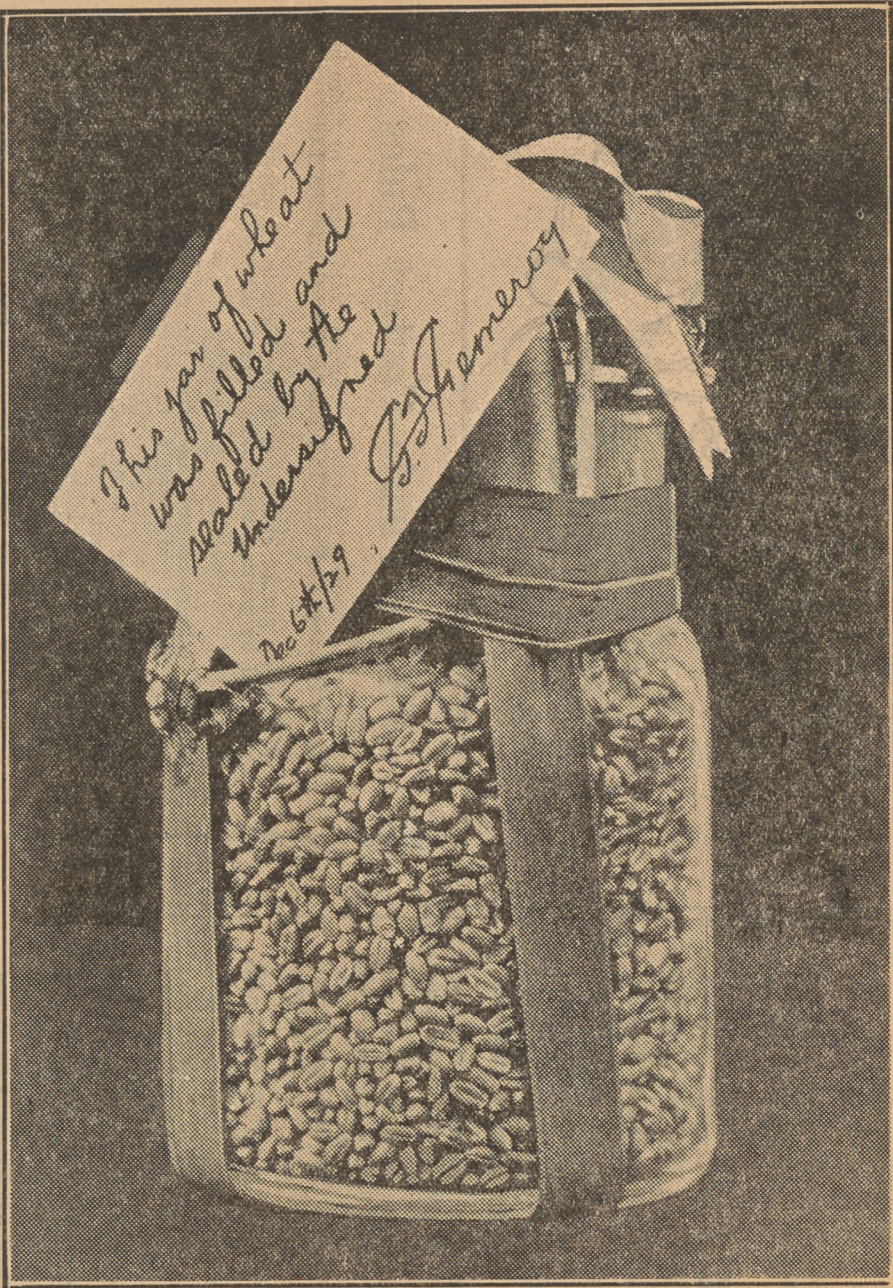 This jar of wheat
was filled and
sealed by the
undersigned
Dec 6th/29